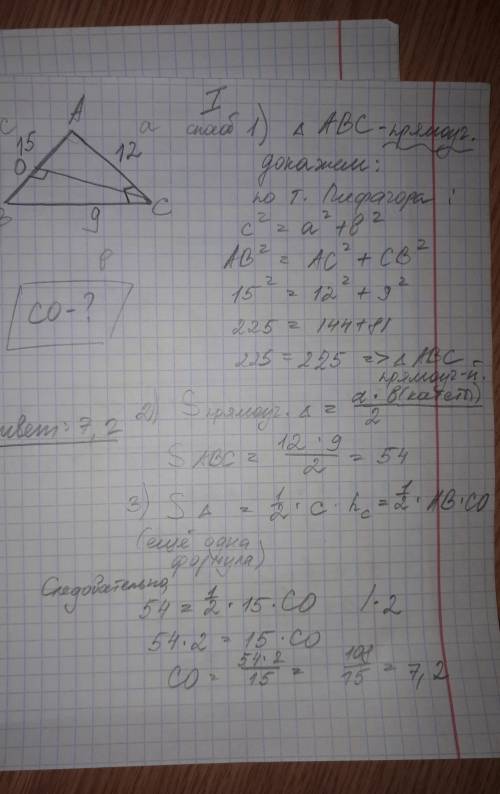 I
способ 1) △ ABC - прямоуг.
докажем:
по т. Пифагора:
c² = a² + b²
AB² = AC² + CB²
15² = 12² + 9²
225 = 144 + 81
225 = 225 => △ ABC
прямоуг-й.
A
c
a
15
O
12
B
9
C
в
CO - ?
ответ: 7,2
2) S прямоуг. △ = a · в (катеты) / 2
S ABC = 12 · 9 / 2 = 54
3) S △ = 1/2 · c · h_c = 1/2 · AB · CO
(ещё одна
формула)
Следовательно,
54 = 1/2 · 15 · CO / · 2
54 · 2 = 15 · CO
CO = 54 · 2 / 15 = 108 / 15 = 7,2